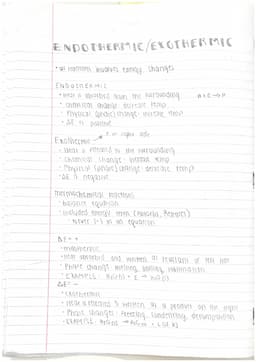 ENDOTHERMIC/EXOTHERMIC
• all reactions involves energy changes
ENDOTHERMIC
• Heat is absorbed from the surrounding
A + E → P
• Chemical change - decrease temp
• Physical (phase) change - increase temp
• ΔE is positive
Exothermic
• Heat is released to the surrounding
• Chemical change - increase temp
• Physical (phase) change - decrease temp
• ΔE is negative
Thermochemical reactions
• balance equation
• included energy term
never (-) in an equation
ΔE = +
• endothermic
• Heat absorbed and written as reactant of the left
• Phase change: melting, boiling, sublimation
• EXAMPLE:
ΔE = -
• Exothermic
• Heat released is written as a product on the right
• Phase changes: freezing, condensing, decomposition
• EXAMPLE: